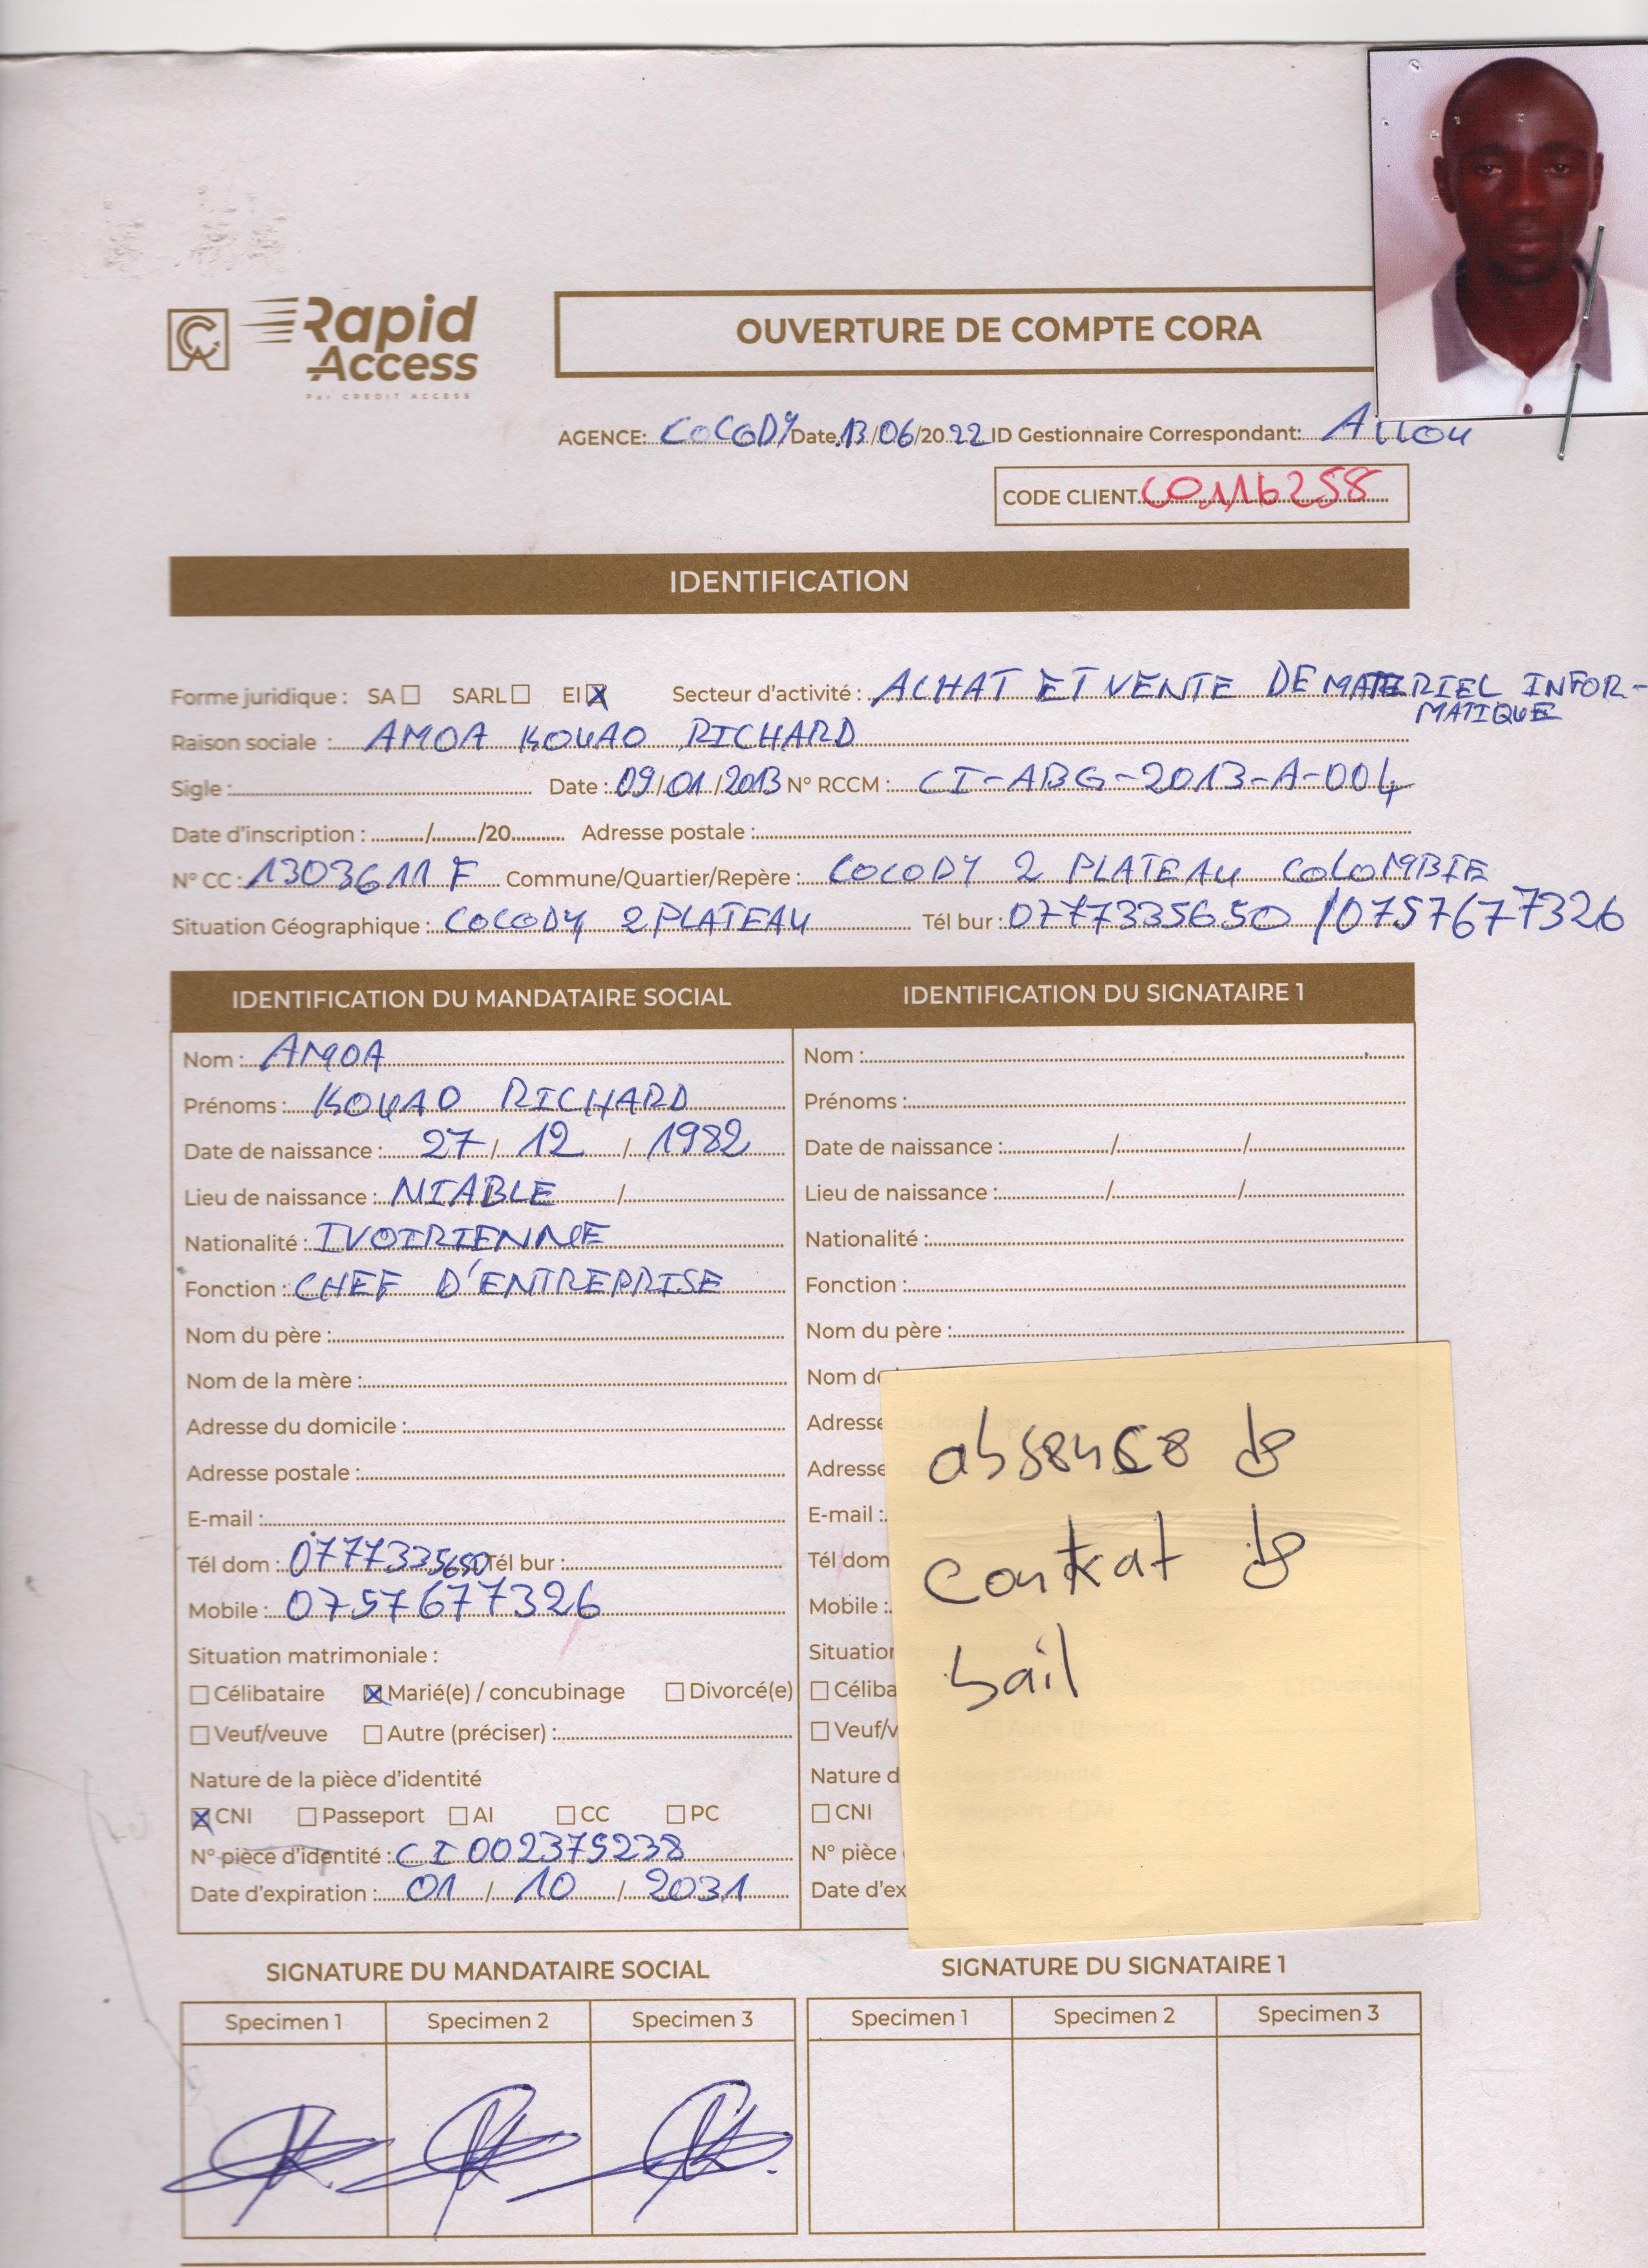 Rapid
Access
Par CREDIT ACCESS
OUVERTURE DE COMPTE CORA
AGENCE: COCODY Date 13/06/2022 ID Gestionnaire Correspondant:
CODE CLIENT C0116258
IDENTIFICATION
Forme juridique : SA ☐ SARL ☐ EI ☒ Secteur d'activité : ACHAT ET VENTE DE MATERIEL INFOR-
MATIQUE
Raison sociale : AMOA KOUAO RICHARD
Sigle : Date : 09/01/2013 N° RCCM : CI-ABG-2013-A-004
Date d'inscription : ........./......../20........... Adresse postale :
N° CC : 1303611 F Commune/Quartier/Repère : COCODY 2 PLATEAU COLOMBIE
Situation Géographique : COCODY 2 PLATEAU Tél bur : 0777335650 / 0757677326
IDENTIFICATION DU MANDATAIRE SOCIAL
Nom : AMOA
Prénoms : KOUAO RICHARD
Date de naissance : 27 / 12 / 1982
Lieu de naissance : NIABLE /
Nationalité : IVOIRIENNE
Fonction : CHEF D'ENTREPRISE
Nom du père :
Nom de la mère :
Adresse du domicile :
Adresse postale :
E-mail :
Tél dom : 0777335650 Tél bur :
Mobile : 0757677326
Situation matrimoniale :
☐ Célibataire ☒ Marié(e) / concubinage ☐ Divorcé(e)
☐ Veuf/veuve ☐ Autre (préciser) :
Nature de la pièce d'identité
☒ CNI ☐ Passeport ☐ AI ☐ CC ☐ PC
N° pièce d'identité : CI 002375238
Date d'expiration : 01 / 10 / 2031
IDENTIFICATION DU SIGNATAIRE 1
Nom :
Prénoms :
Date de naissance : / /
Lieu de naissance : / /
Nationalité :
Fonction :
Nom du père :
Nom de
Adresse
Adresse
E-mail :
Tél dom
Mobile :
Situation
☐ Céliba
☐ Veuf/v
Nature d
☐ CNI
N° pièce
Date d'ex
absence de
contrat de
bail
SIGNATURE DU MANDATAIRE SOCIAL
Specimen 1 Specimen 2 Specimen 3
SIGNATURE DU SIGNATAIRE 1
Specimen 1 Specimen 2 Specimen 3